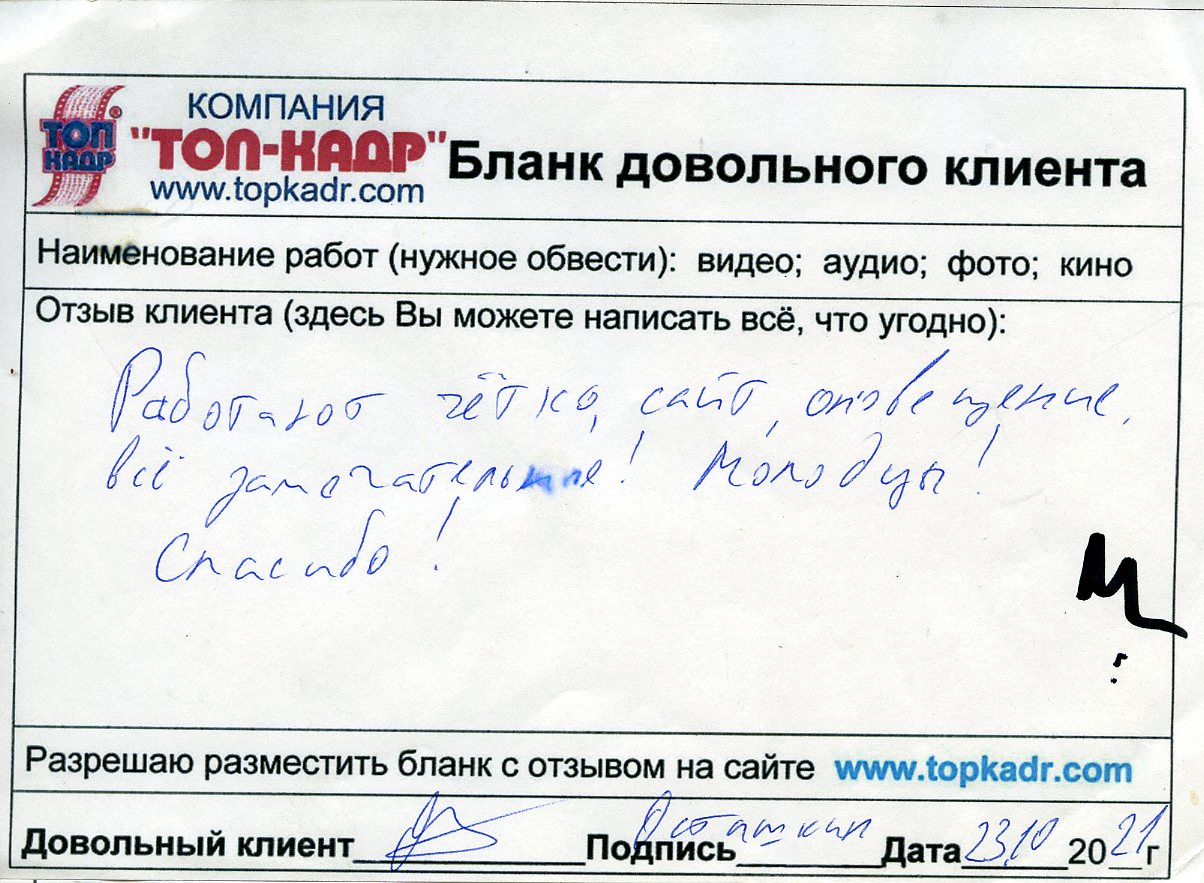 ТОП КАДР ®
КОМПАНИЯ
"ТОП-КАДР"
www.topkadr.com
Бланк довольного клиента
Наименование работ (нужное обвести): видео; аудио; фото; кино
Отзыв клиента (здесь Вы можете написать всё, что угодно):
Работают чётко, сайт, оповещение,
всё замечательно! Молодцы!
Спасибо!
Разрешаю разместить бланк с отзывом на сайте www.topkadr.com
Довольный клиент Подпись Осташкин Дата 23.10 2021г